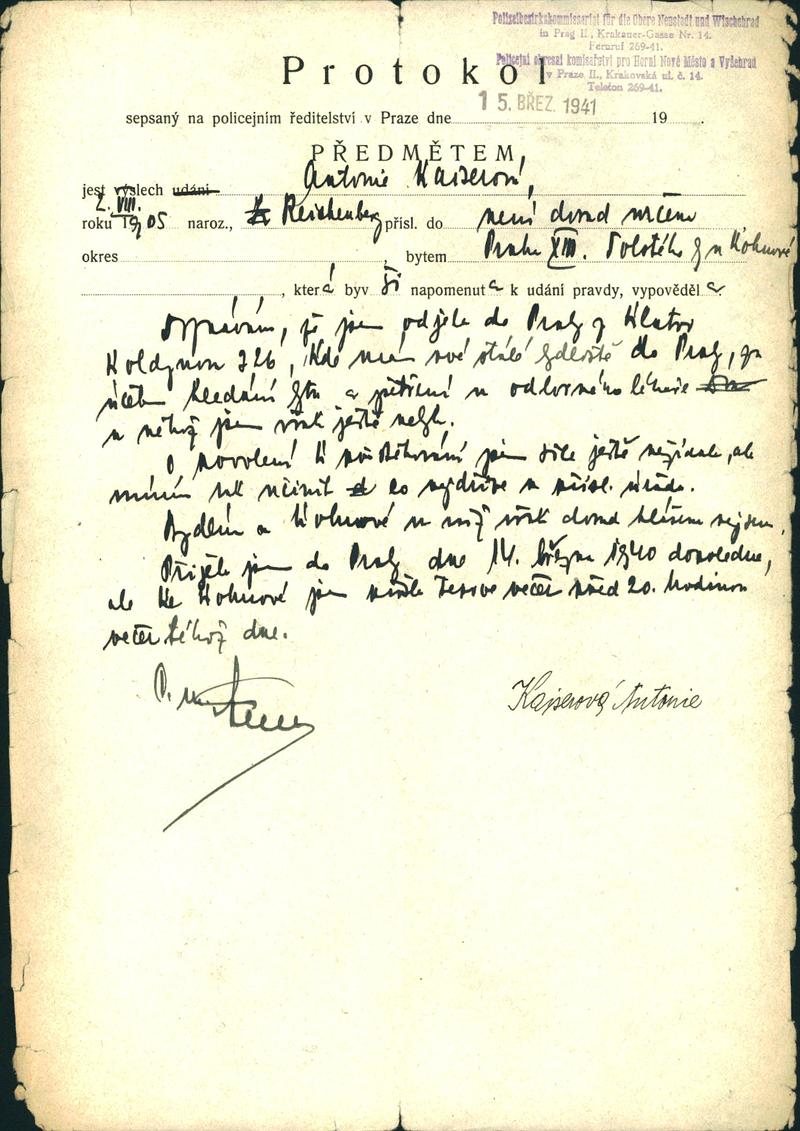 Polizeibezirkskommissariat für die Obere Neustadt und Wischehrad
in Prag II., Krakauer-Gasse Nr. 14.
Fernruf 269-41.
Policejní okresní komisařství pro Horní Nové Město a Vyšehrad
v Praze II., Krakovská ul. č. 14.
Telefon 269-41.
Protokol
15. BŘEZ. 1941
sepsaný na policejním ředitelství v Praze dne 19 .
PŘEDMĚTEM,
jest výslech udání Antonie Kaiserová,
2. VIII.
roku 1905 naroz., Reichenberg přísl. do není dosud určena
okres , bytem Praha XIII. Tolstého u Kohnové
, která byvši napomenuta k udání pravdy, vypověděla:
, že jsem odjela do Prahy z Klatov
Koldynova 226, kde mám své stálé do Prahy, za
účelem hledání a u odborného lékaře
u něhož jsem však ještě nebyla.
O povolení k jsem sice ještě nežádala, ale
míním tak učiniti co nejdříve u přísl. úřadu.
Bydlím u Kohnové u níž však dosud hlášena nejsem.
Přijela jsem do Prahy dne 14. března 1940 dopoledne,
ale ke Kohnové jsem přišla večer před 20. hodinou
večer téhož dne.
Kaiserová Antonie